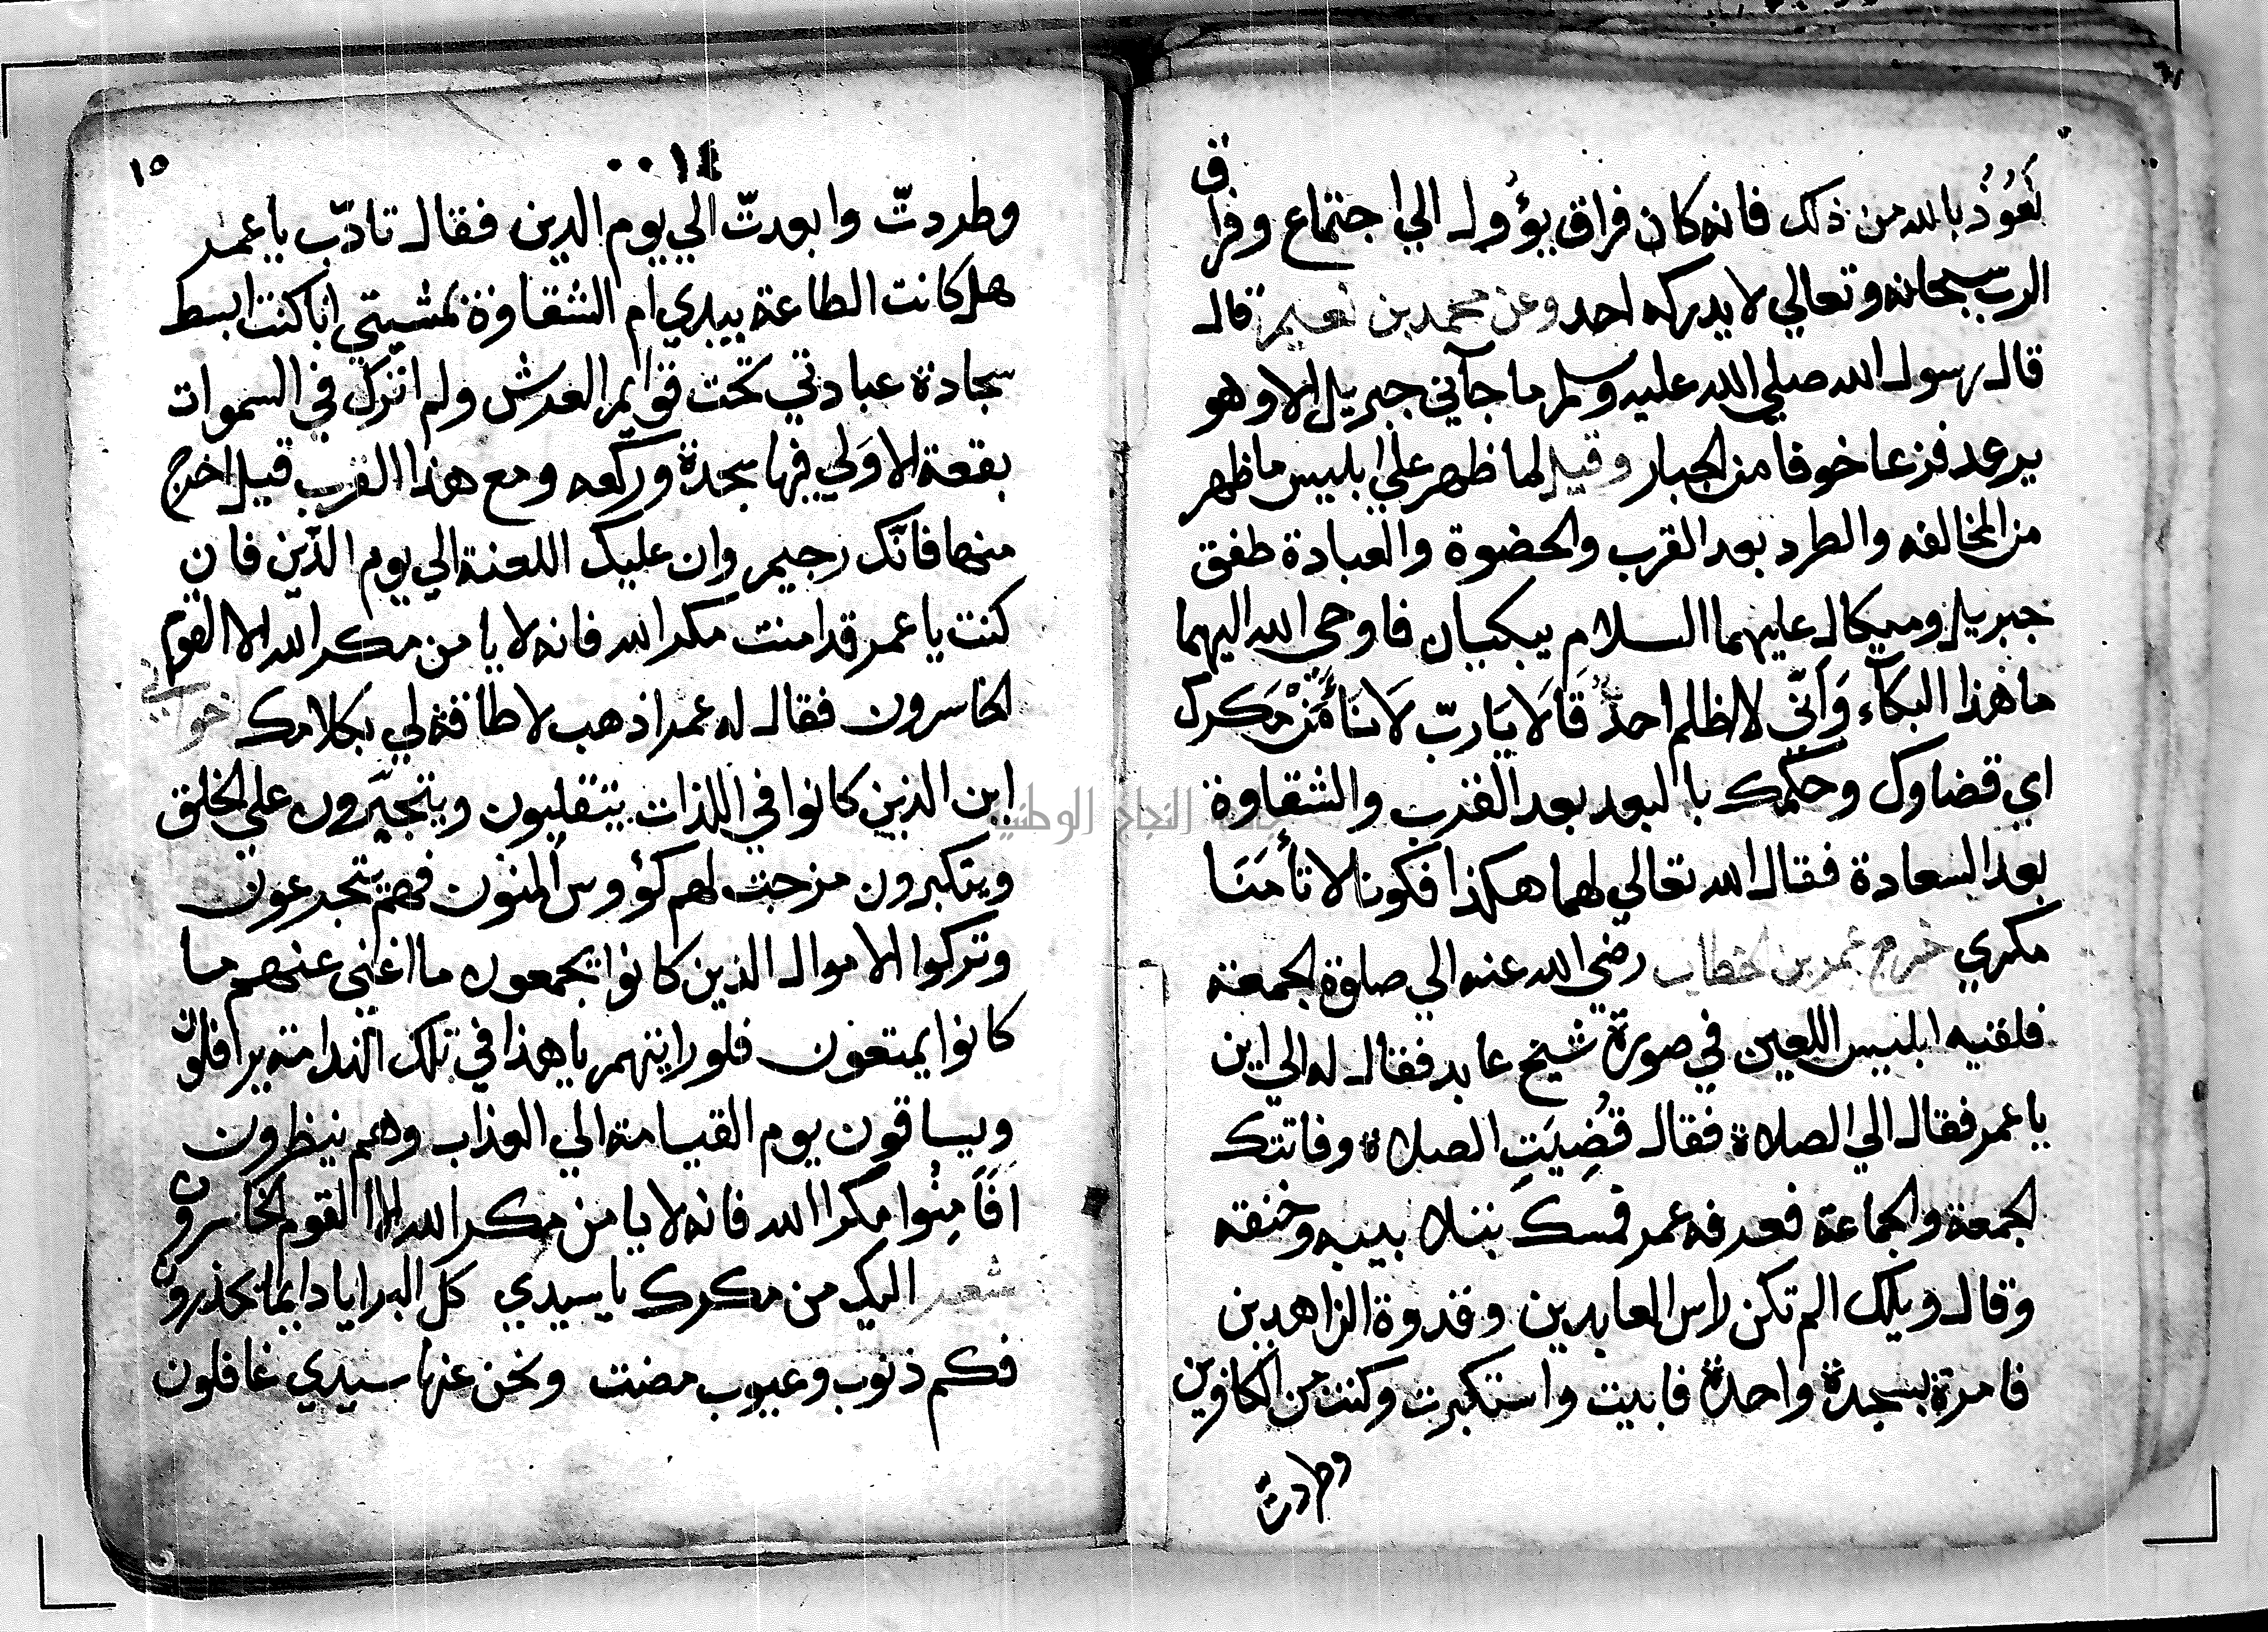 نَعُوُذُ بالله من ذلك فانه كان فراق يؤول الي اجتماع وفراق
الرب سبحانه وتعالي لا يدركه احد وعن محمد بن نعيم قال
قال رسول الله صلي الله عليه وسلم ما جآني جبريل الا وهو
يرعد فزعا خوفا من الجبار وقيل لما ظهر علي ابليس ما ظهر
من المخالفه والطرد بعد القرب والحضوة والعبادة طفق
جبريل وميكال عليهما السلام يبكيان فاوحي الله اليهما
ما هذا البكآء وَاَنّي لا اظلم احدٌ قَالَا يَارَبّ لَا نَأمَنْ مَكرك
اي قضاوك وحكمك بالبعد بعد القرب والشقاوة
بعد السعادة فقال الله تعالي لهما هكذا فكونا لا تأمَنَا
مكري خرج عمر بن الخطاب رضي الله عنه الي صلوة الجمعة
فلقيه ابليس اللعين في صورة شيخ عابد فقال له الي اين
يا عمر فقال الي الصلاة فقال قُضِيَتِ الصلاة وفاتتك
الجمعة والجماعة فعرفه عمر فمسك بتلابيبه وخنقه
وقال ويلك الم تكن راس العابدين وقدوة الزاهدين
فامرة بسجدة واحدة فابيت واستكبرت وكنت من الكافرين
وطردت
١٥
٠٠١٤
وطردتّ وابعدتّ الي يوم الدين فقال تادّب يا عمر
هل كانت الطاعة بيدي ام الشقاوة بمشيتي انا كنت ابسط
سجادة عبادتي تحت قوايم العرش ولم اترك في السموات
بقعة الا وَلي فيها سجدة وركعه ومع هذا القرب قيل اخرج
منها فانّك رجيم وان عليك اللعنة الي يوم الدّين فان
كنت يا عمر قد امنت مكر الله فانه لا يامن مكر الله الا القوم
الخاسرون فقال له عمر اذهب لا طاقة لي بكلامك اخواني
اين الذين كانوا في اللذات يتقلبون ويتجبّرون علي الخلق
ويتكبرون مزجت لهم كؤوس المنون فهم يتجرعون
وتركوا الاموال الذين كانوا يجمعون ما اغني عنهم ما
كانوا يمتعون فلو رايتهم يا هذا في تلك الندامة يرافلون
ويساقون يوم القيامة الي العذاب وهم ينظرون
اَفَاَمِنُوا مكر الله فانه لا يامن مكر الله الا القوم الخاسرون
شعر اليك من مكرك يا سيدي كل البرايا دايما يحذرون
فكم ذنوب وعيوب مضت ونحن عنها سيدي غافلون
النجاح الوطنية